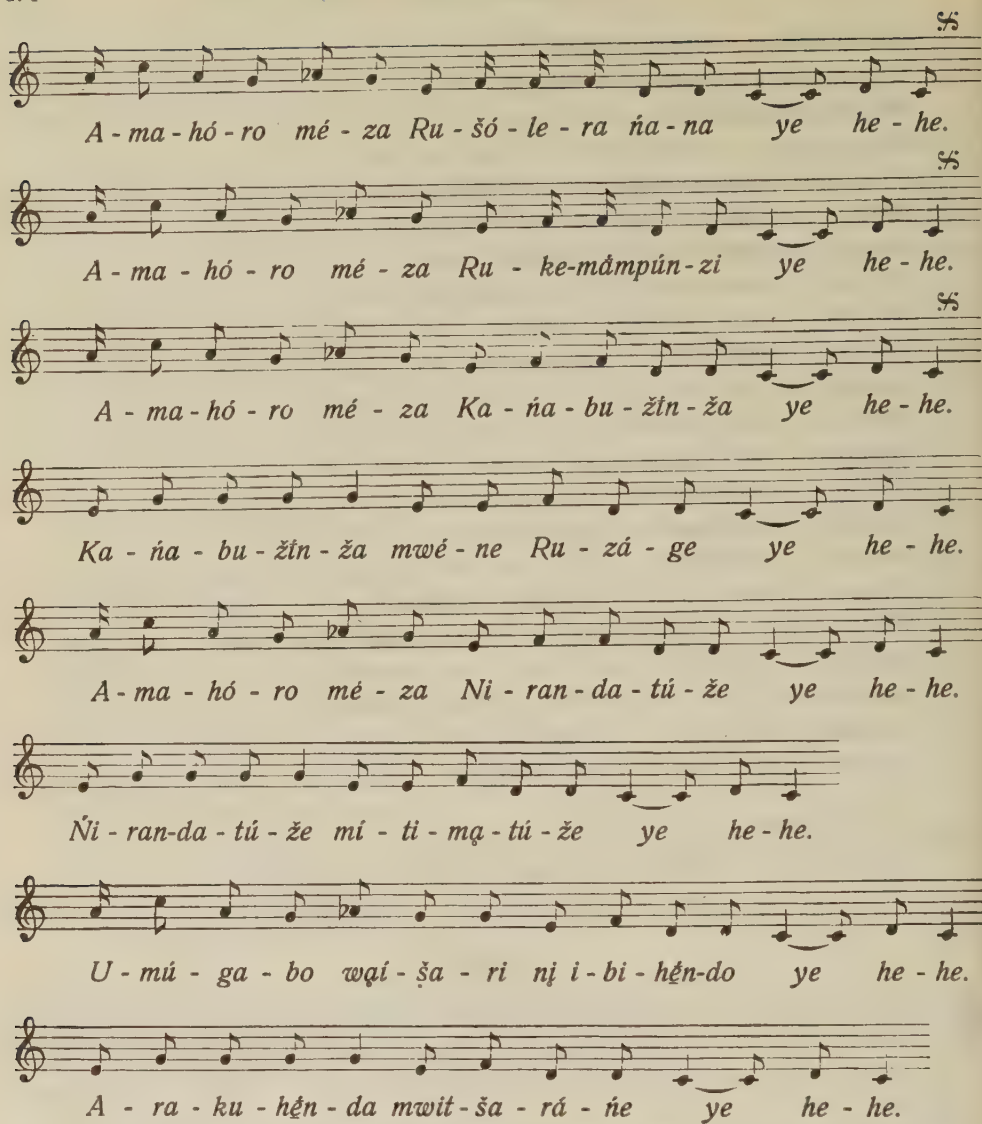 A - ma - hó - ro mé - za Ru - šó - le - ra ńa - na ye he - he.
A - ma - hó - ro mé - za Ru - ke - mâmpún - zi ye he - he.
A - ma - hó - ro mé - za Ka - ńa - bu - žín - ža ye he - he.
Ka - ńa - bu - žín - ža mwé - ne Ru - zá - ge ye he - he.
A - ma - hó - ro mé - za Ni - ran - da - tú - že ye he - he.
Ńi - ran - da - tú - že mí - ti - mą - tú - že ye he - he.
U - mú - ga - bo wąí - ša - ri nį i - bi - hę́n - do ye he - he.
A - ra - ku - hę́n - da mwit - ša - rá - ńe ye he - he.